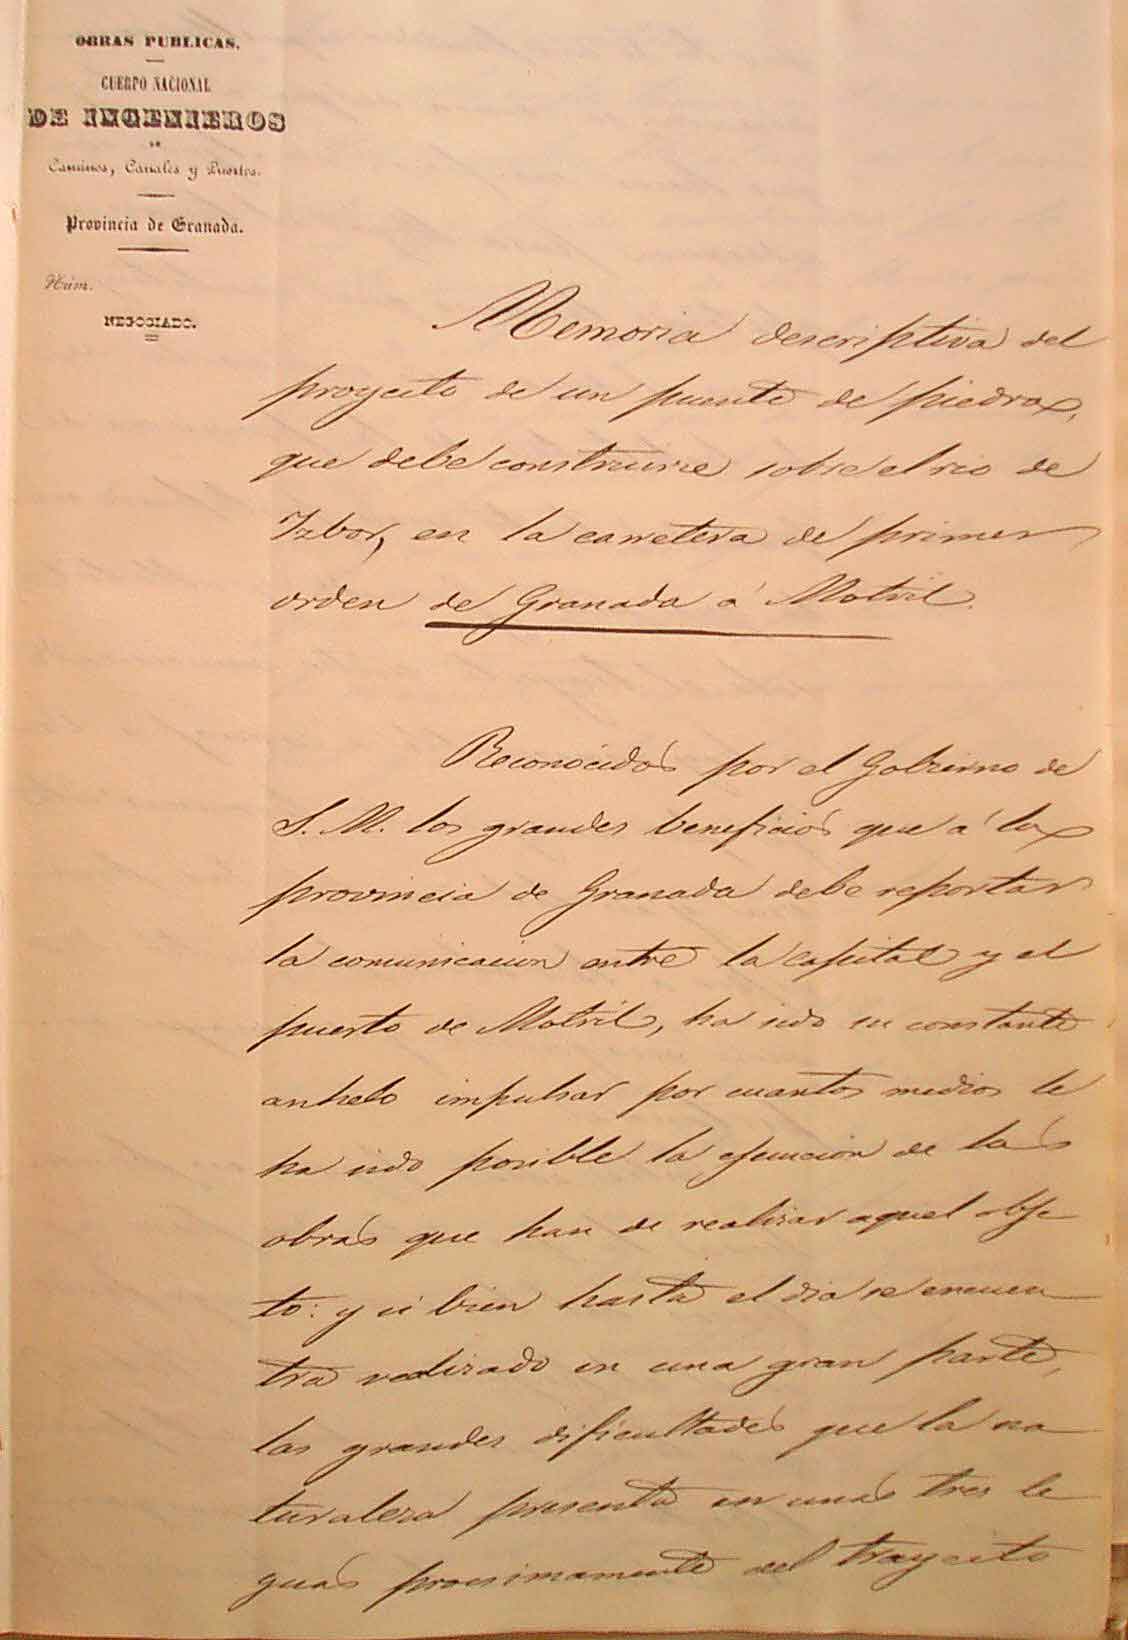 OBRAS PUBLICAS.
CUERPO NACIONAL
DE INGENIEROS
DE
Caminos, Canales y Puertos.
Provincia de Granada.
Núm.
NEGOCIADO.
Memoria descriptiva del
proyecto de un puente de piedra,
que debe construirse sobre el rio de
Izbor, en la carretera de primer
orden de Granada á Motril.
Reconocidos por el Gobierno de
S. M. los grandes beneficios que á la
provincia de Granada debe reportar
la comunicacion entre la capital y el
puerto de Motril, ha sido su constante
anhelo impulsar por cuantos medios le
ha sido posible la ejecucion de las
obras que han de realizar aquel obje
to: y si bien hasta el dia se encuen
tra realizado en una gran parte,
las grandes dificultades que la na
turaleza presenta en unas tres le
guas procsimamente del trayecto